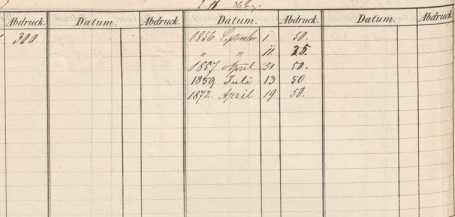 Abdruck. Datum. Abdruck. Datum. Abdruck. Datum. Abdruck.
300. 1856 September 1 50.
" " 11. 25.
1857 April 21 50.
1859 Juli 13 50.
1872. April 19 50.